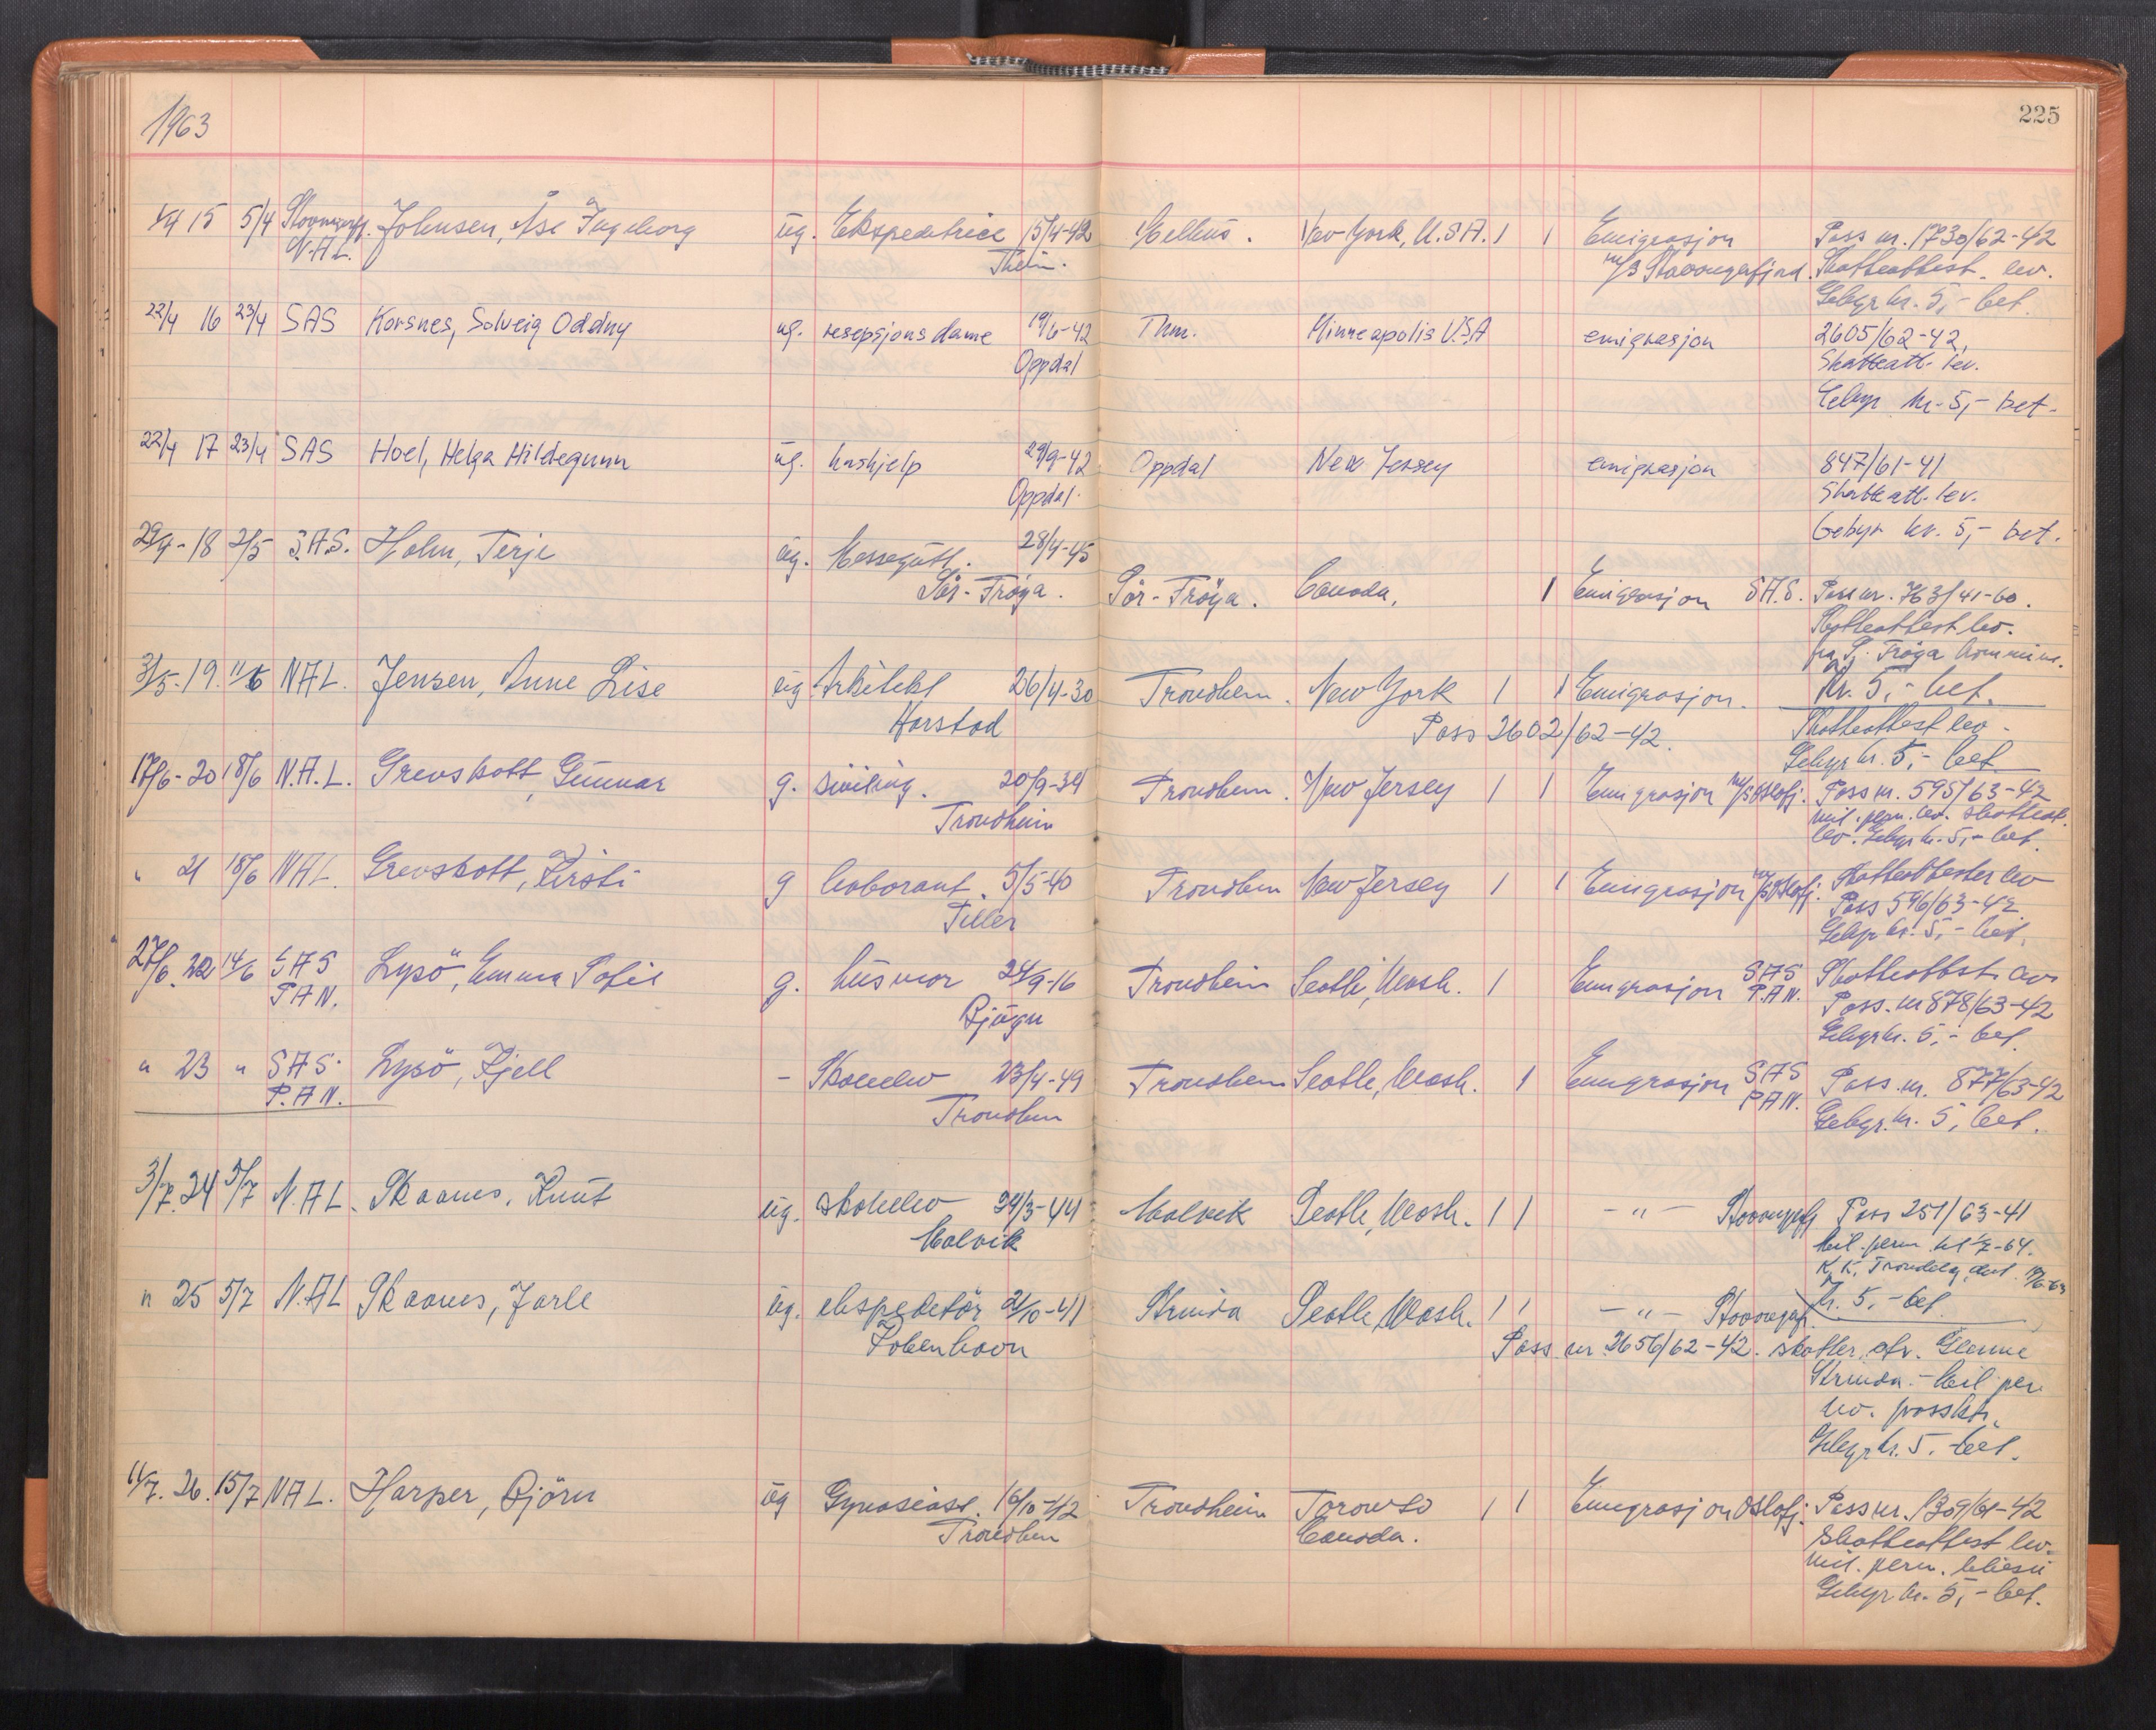 1963
225
15 5/4 Johnsen, Åse Ingeborg ug. Ekspeditrice 15/4-42 Melhus. New York, U.S.A. 1 1 Emigrasjon Pass nr. 1730/62-42
N.A.L. Thein. m/s Stavangerfjord. Skatteattest lev.
Gebyr kr. 5,- bet.
22/4 16 23/4 SAS Korsnes, Solveig Oddny ug. resepsjonsdame 19/6-42 Thm. Minneapolis USA emigrasjon 2605/62-42,
Oppdal Skatteatt. lev.
Gebyr kr. 5,- bet.
22/4 17 23/4 SAS Hoel, Helga Hildegunn ug. hushjelp 29/9-42 Oppdal New Jersey emigrasjon 847/61-41
Oppdal. Skatteatt. lev.
Gebyr kr. 5,- bet.
29/4 - 18 2/5 S.A.S. Holm, Terje ug. Messegutt. 28/4-45
Sör-Fröya. Sör-Fröya. Canada, 1 Emigrasjon S.A.S. Pass nr. 763/41-60.
Skatteattest lev.
fra S. Fröya kommune.
31/5 - 19. 11/6 N.A.L. Jensen, Anne Lise ug Arkitekt 26/4-30 Trondheim. New York 1 1 Emigrasjon. Kr. 5,- bet.
Harstad Pass 2602/62-42. Skatteattest lev.
Gebyr kr. 5,- bet.
17/6 - 20 18/6 N.A.L. Grevskott, Gunnar g. siviling. 20/9-34 Trondheim. New Jersey 1 1 Emigrasjon m/s Oslofj. Pass nr. 595/63-42
Trondheim mil. perm. lev. skatteat.
lev. Gebyr kr. 5,- bet.
" 21 18/6 NAL. Grevskott, Kirsti g laborant. 5/5-40 Trondheim New Jersey 1 1 Emigrasjon m/s Oslofj. Skatteattester lev
Tiller Pass 596/63-42
Gebyr kr. 5,- bet.
27/6. 22 14/6 SAS Lysö, Emma Sofie g. husmor 24/9-16 Trondheim Seattle, Wash. 1 Emigrasjon SAS Skatteattest lev
PAN. Bjugn P.A.N. Pass. nr 878/63-42
Gebyr kr. 5,- bet.
" 23 " SAS. Lysö, Kjell - Skoleelev 23/4-49 Trondheim Seattle, Wash. 1 Emigrasjon SAS Pass. nr. 877/63-42
P.A.N. Trondheim PAN. Gebyr. kr. 5, bet.
3/7. 24 5/7 N.A.L. Skaanes, Knut ug. skoleelev 24/3-44 Malvik Seattle, Wash. 1 1 - " - Stavangerfj Pass 251/63-41
Malvik Mil. perm. til 1/7-64.
K.K. Trondelag
" 25 5/7 N.A.L Skaanes, Jarle ug. ekspeditör 21/10-41 Strinda Seattle, Wash. 1 1 - " - Stavangerfj. kr. 5,- bet.
Köbenhavn Pass nr. 2656/62-42. skatter
Strinda. - Mil. per
lev. passktr.
Gebyr kr. 5. bet.
11/7. 26. 15/7 NAL. Harper, Björn ug Gymnasiast. 16/10-42 Trondheim Toronto 1 1 Emigrasjon Oslofj. Pass nr. 1309/61-42
Trondheim Canada. Skatteattest lev.
mil. perm.
Gebyr kr. 5,- bet.